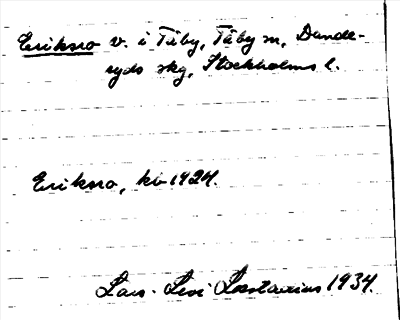 Eriksro v. i Täby, Täby sn, Dande-
ryds skg, Stockholms l.
Eriksro, kv 1924.
Lars-Levi Læstadius 1934.